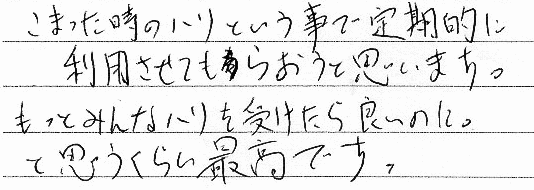 こまった時のハリという事で定期的に
利用させてもらおうと思います。
もっとみんなハリを受けたら良いのに。
と思うくらい最高です。